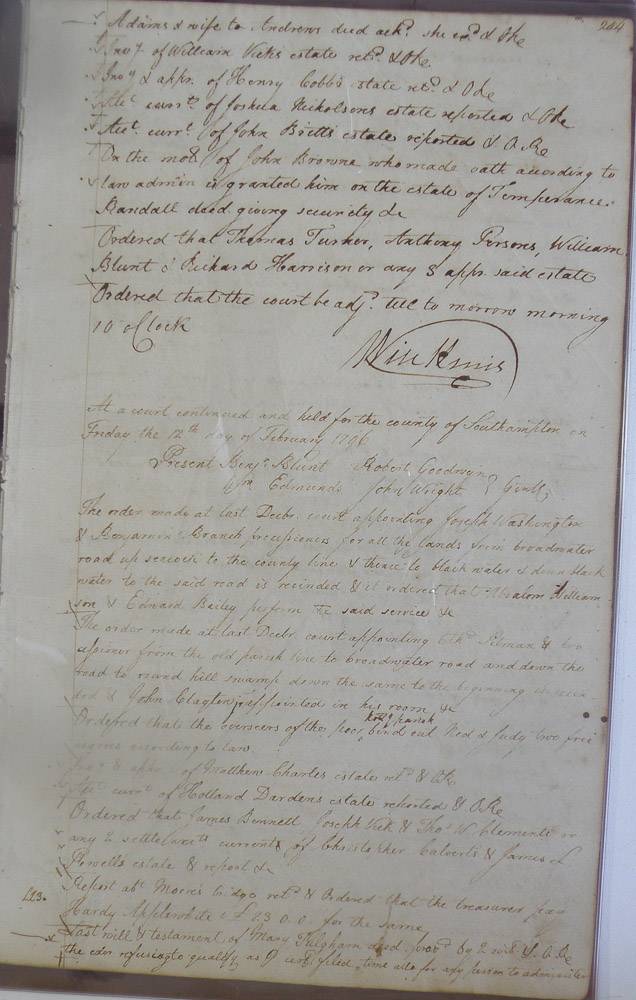 204
Adams & wife to Andrews deed ackd. she exd. & Ore
Invy. of William Vicks estate retd. & Ore
Invy & appr. of Henry Cobbs estate retd. & Ore
Acct. currt. of Joshua Nicholsons estate reported & Ore
Acct. currt. of John Britts estate reported & O. Re
On the mot. of John Browne who made oath according to
law admin is granted him on the estate of Temperance
Randall deed. giving security &c
Ordered that Thomas Turner, Anthony Persons, William
Blunt & Richard Harrison or any 3 appr. said estate
Ordered that the court be adjd. till to morrow morning
10 oClock
At a court continued and held for the county of Southampton on
Friday the 12th day of February 1796
Present Benjn. Blunt Robert Goodwyn
Wm. Edmunds John Wright Gentl;
The order made at last Decbr. court appointing Joseph Washington
& Benjamin Branch for all the lands from broadwater
road up to the county line & thence to black water & down black
water to the said road is recinded & it ordered that Absalom William
son & Edward Bailey perform the said service &c
The order made at last Decbr. court appointing &
from the old parish line to broadwater road and down the
road to round hill swamp down the same to the beginning
& John Clayton appointed in his room &c
Ordered that the overseers of the poor parish bind out Ned & Judy two free
negroes according to law.
Invy & appr. of Matthew Charles estate retd. & Ore
Acct. currt. of Holland Dardens estate reported & O. Re
Ordered that James Bennell, Joseph Vick & Thos. W. Clements or
any 2 settle accts currents of Christopher Calverts & James
Powells estate & report &c
Report abt. Moores bridge retd. & Ordered that the treasurer pay
Hardy Applewhite £ 13 0 0 for the same
113.
Last will & testament of Mary Fulgham deed. provd. by 2 wits & O. Re
the exor refusing to qualify as certified, time for any person to administer